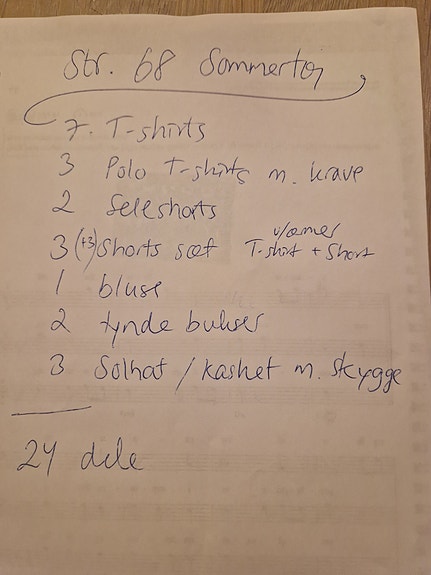 Str. 68 Sommertøj
7. T-shirts
3 Polo T-shirts m. krave
2 Seleshorts
3 (+3) Shorts sæt u/ærmer T-shirt + Short
1 bluse
2 tynde bukser
3 Solhat / kasket m. skygge
24 dele